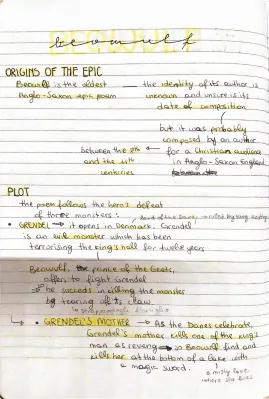 beowulf
ORIGINS OF THE EPIC
Beowulf is the oldest — the identity of its author is
Anglo-Saxon epic poem unknown and unsure is its
date of composition
but it was probably
composed by an author
between the 8th for a Christian audience
and the 11th in Anglo-Saxon England
centuries
PLOT
the poem follows the hero's defeat
of three monsters: land of the Danes → ruled by king
• GRENDEL → it opens in Denmark. Grendel
is an evil monster which has been
terrorising the king's hall for twelve years
Beowulf, the prince of the Geats,
offers to fight Grendel
→ he succeeds in killing the monster
by tearing off its claw
• GRENDEL'S MOTHER → As the Danes celebrate,
Grendel's mother kills one of the king's
man as revenge → so Beowulf find and
kills her at the bottom of a lake with
a magic sword.
where she lives